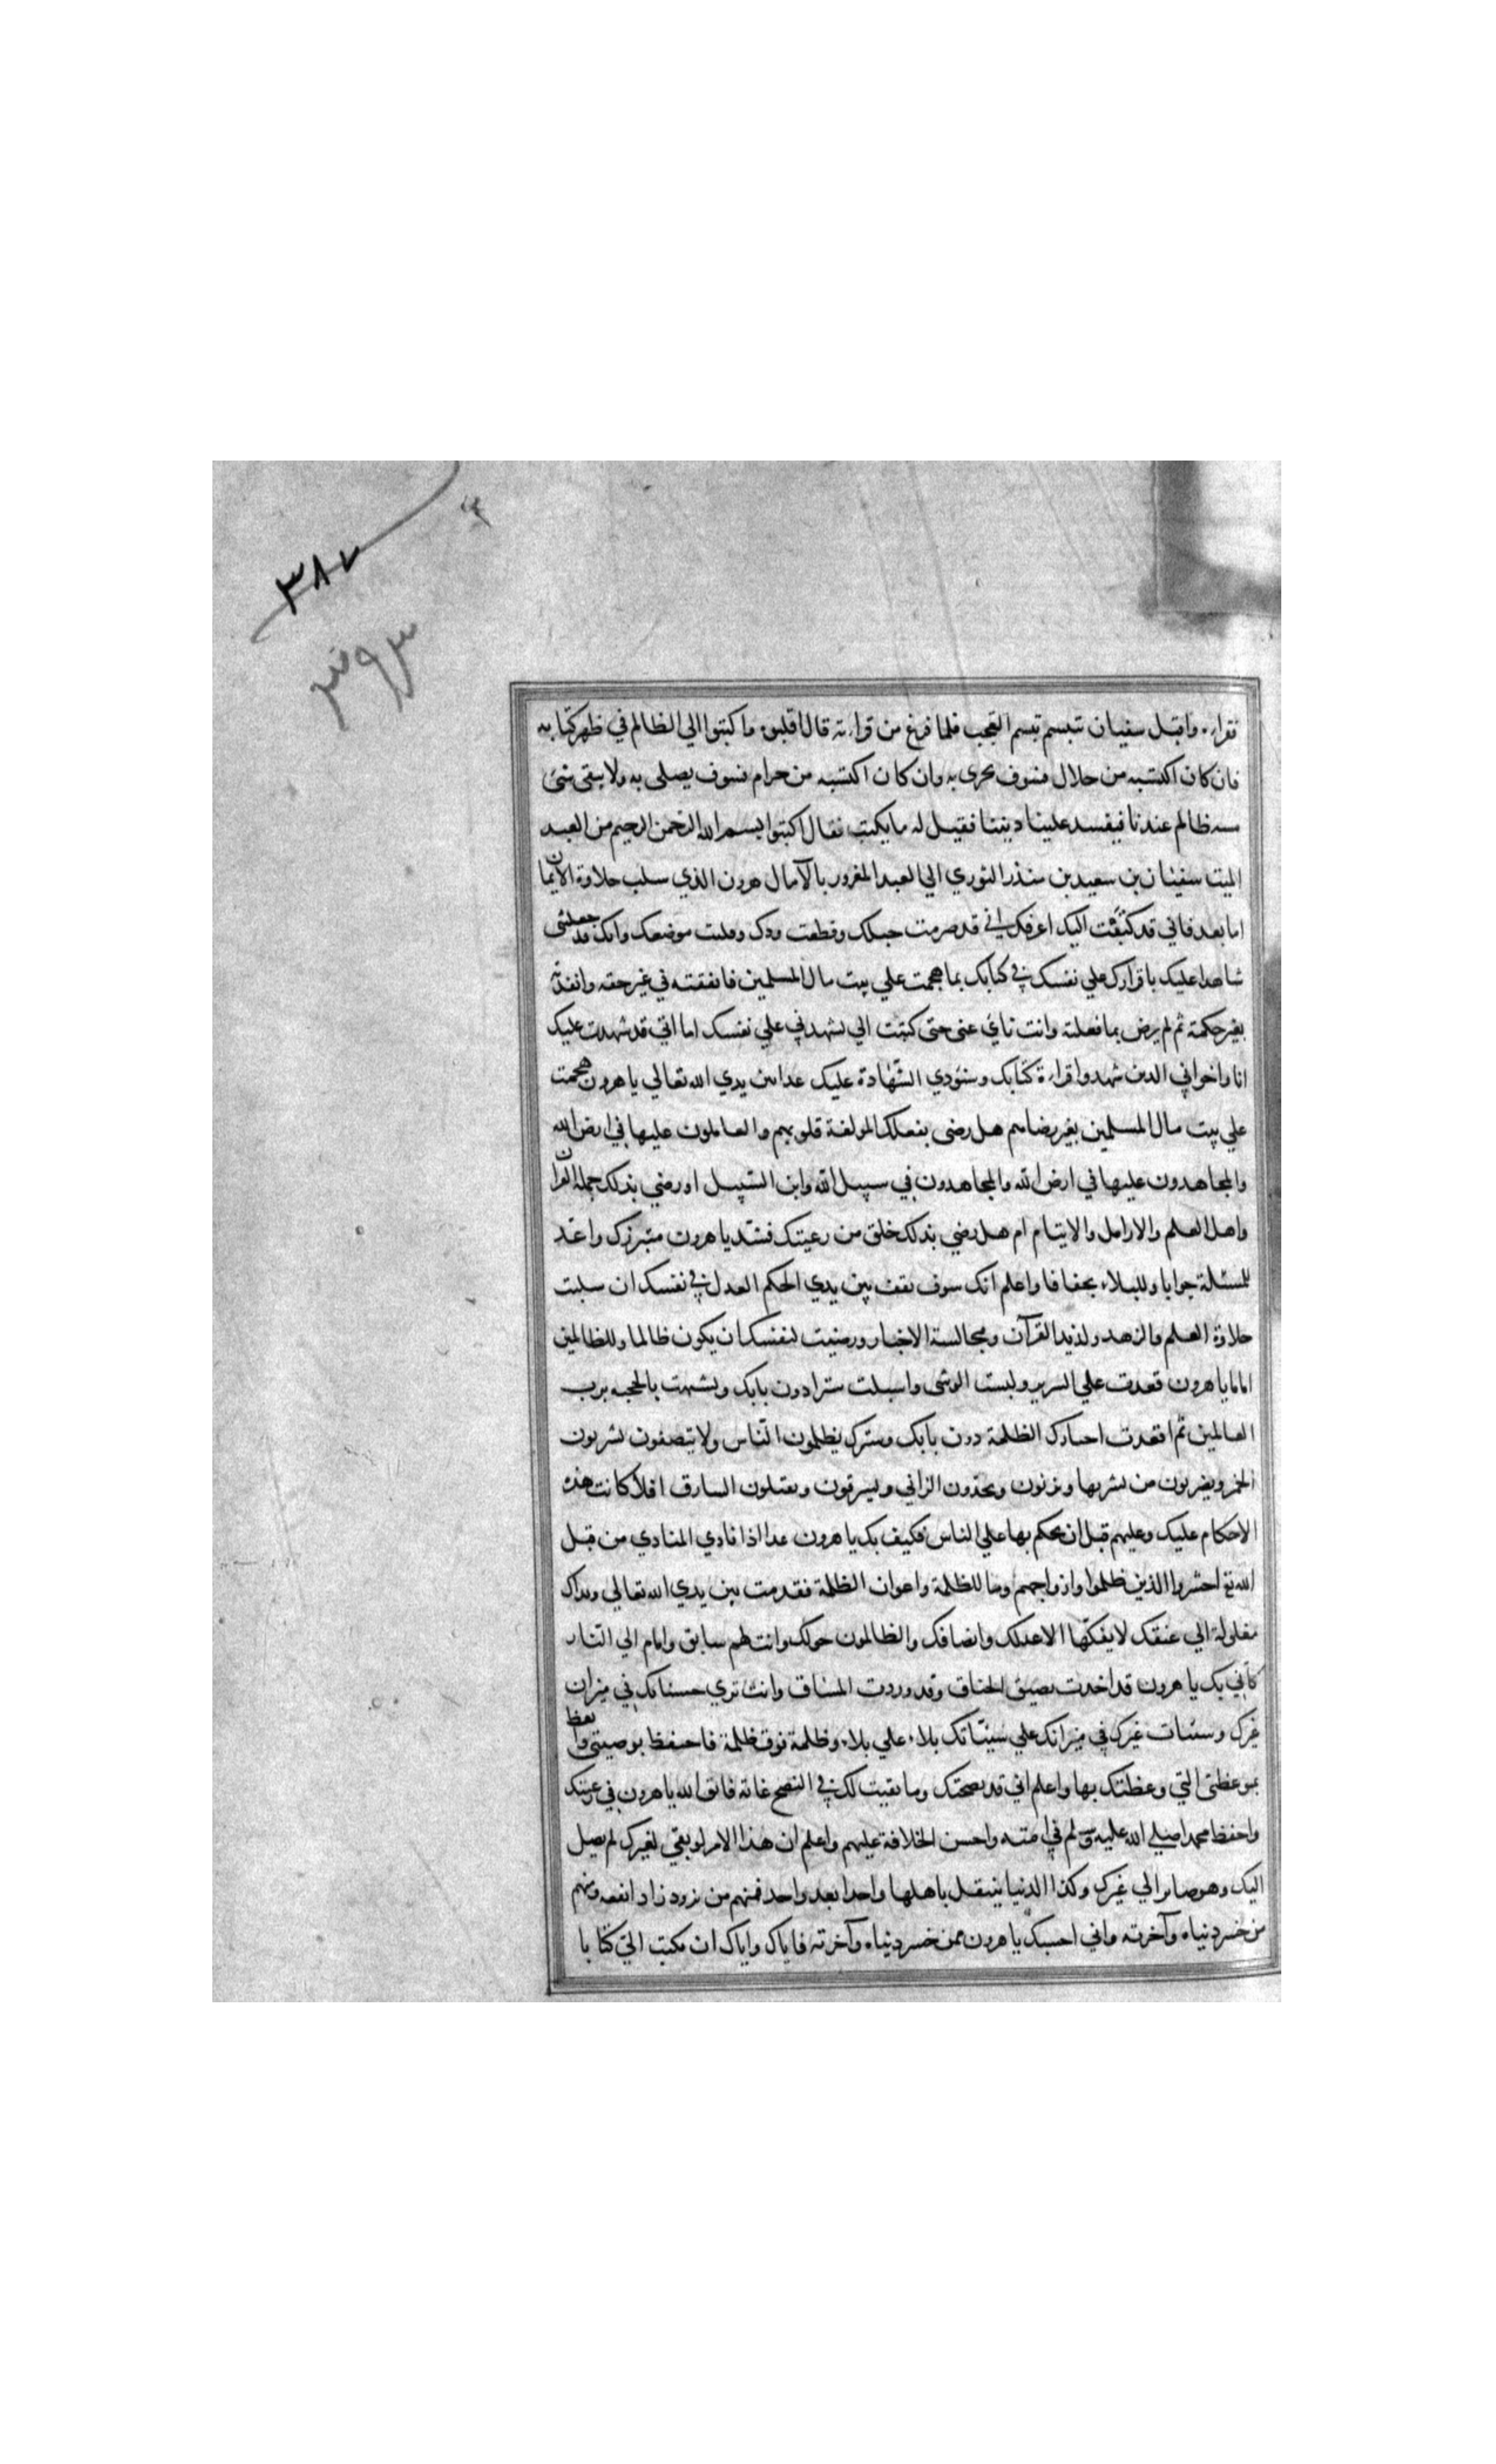 ٣٨٧
٣٩٣
فقراه واقبل سفيان تبسم تبسم التعجب فلما فرغ من قراءته قال اقلبوه واكتبوا الي الظالم في ظهر كتابه
فان كان اكتسبه من حلال فسوف يجزى به وان كان اكتسبه من حرام فسوف يصلى به ولا يبقى شئ
مسه ظالم عندنا فيفسد علينا ديننا فقيل له ما يكتب فقال اكتبوا بسم الله الرحمن الرحيم من العبد
الميت سفيان بن سعيد بن منذر الثوري الي العبد المغرور بالآمال هرون الذي سلب حلاوة الايمان
اما بعد فاني قد كتبت اليك اعرفك اني قد صرمت حبلك وقطعت ودك وقليت موضعك وانك قد جعلتني
شاهدا عليك باقرارك علي نفسك في كتابك بما هجمت علي بيت مال المسلمين فانفقته في غير حقه وانفذته
بغير حكمة ثم لم يرض بما فعلته وانت نائي عني حتى كتبت الي تشهدني علي نفسك اما اني قد شهدت عليك
انا واخواني الدين شهدوا قراءة كتابك وسنؤدي الشهادة عليك غدا بين يدي الله تعالي يا هرون هجمت
علي بيت مال المسلمين بغير رضاهم هل رضى بفعلك المولفة قلوبهم والعاملون عليها في ارض الله
والمجاهدون عليها في ارض الله والمجاهدون في سبيل الله وابن السبيل او رضي بذلك حملة القران
واهل العلم والارامل والايتام ام هل رضي بذلك خلق من رعيتك فشد يا هرون متبرزك واعد
للمسئلة جوابا وللبلاء بجفافا واعلم انك سوف تقف بين يدي الحكم العدل في نفسك ان سلبت
حلاوة العلم والزهد ولذيذ القرآن ومجالسة الاخيار ورضيت لنفسك ان يكون ظالما وللظالمين
اماما يا هرون قعدت علي السرير ولبست الوشى واسبلت سترا دون بابك وتشبهت بالحجبه برب
العالمين ثم اقعدت اجنادك الظلمة دون بابك وسترك يظلمون الناس ولا ينصفون يشربون
الخمر ويضربون من يشربها ويزنون ويحدون الزاني ويسرقون ويقتلون السارق افلا كانت هذه
الاحكام عليك وعليهم قبل ان يحكم بها علي الناس فكيف بك يا هرون غدا اذا نادي المنادي من قبل
الله تع احشروا الذين ظلموا وازواجهم وما للظلمة واعوان الظلمة فقدمت بين يدي الله تعالي ويداك
مغلولة الي عنقك لا يفكها الا عدلك وانصافك والظالمون حولك وانت لهم سابق وامام الي النار
كاني بك يا هرون قد اخذت بضيق الخناق وقد وردت المساق وانت تري حسناتك في ميزان
غيرك وسيئات غيرك في ميزانك علي سيئاتك بلاء علي بلاء وظلمة فوق ظلمة فاحفظ بوصيتي واتعظ
بموعظتي التي وعظتك بها واعلم اني قد نصحتك وما بقيت لك في النصح غاته فاتق الله يا هرون في رعيتك
واحفظ محمدا صلي الله عليه وسلم في امته واحسن الخلافة عليهم واعلم ان هذا الامر لو بقي لغيرك لم يصل
اليك وهو صائر الي غيرك وكذا الدنيا ينتقل باهلها واحدا بعد واحد فمنهم من تزود زادا نفعه ومنهم
من خسر دنياه وآخرته واني احسبك يا هرون ممن خسر دنياه وآخرته فاياك واياك ان تكتب الي كتابا